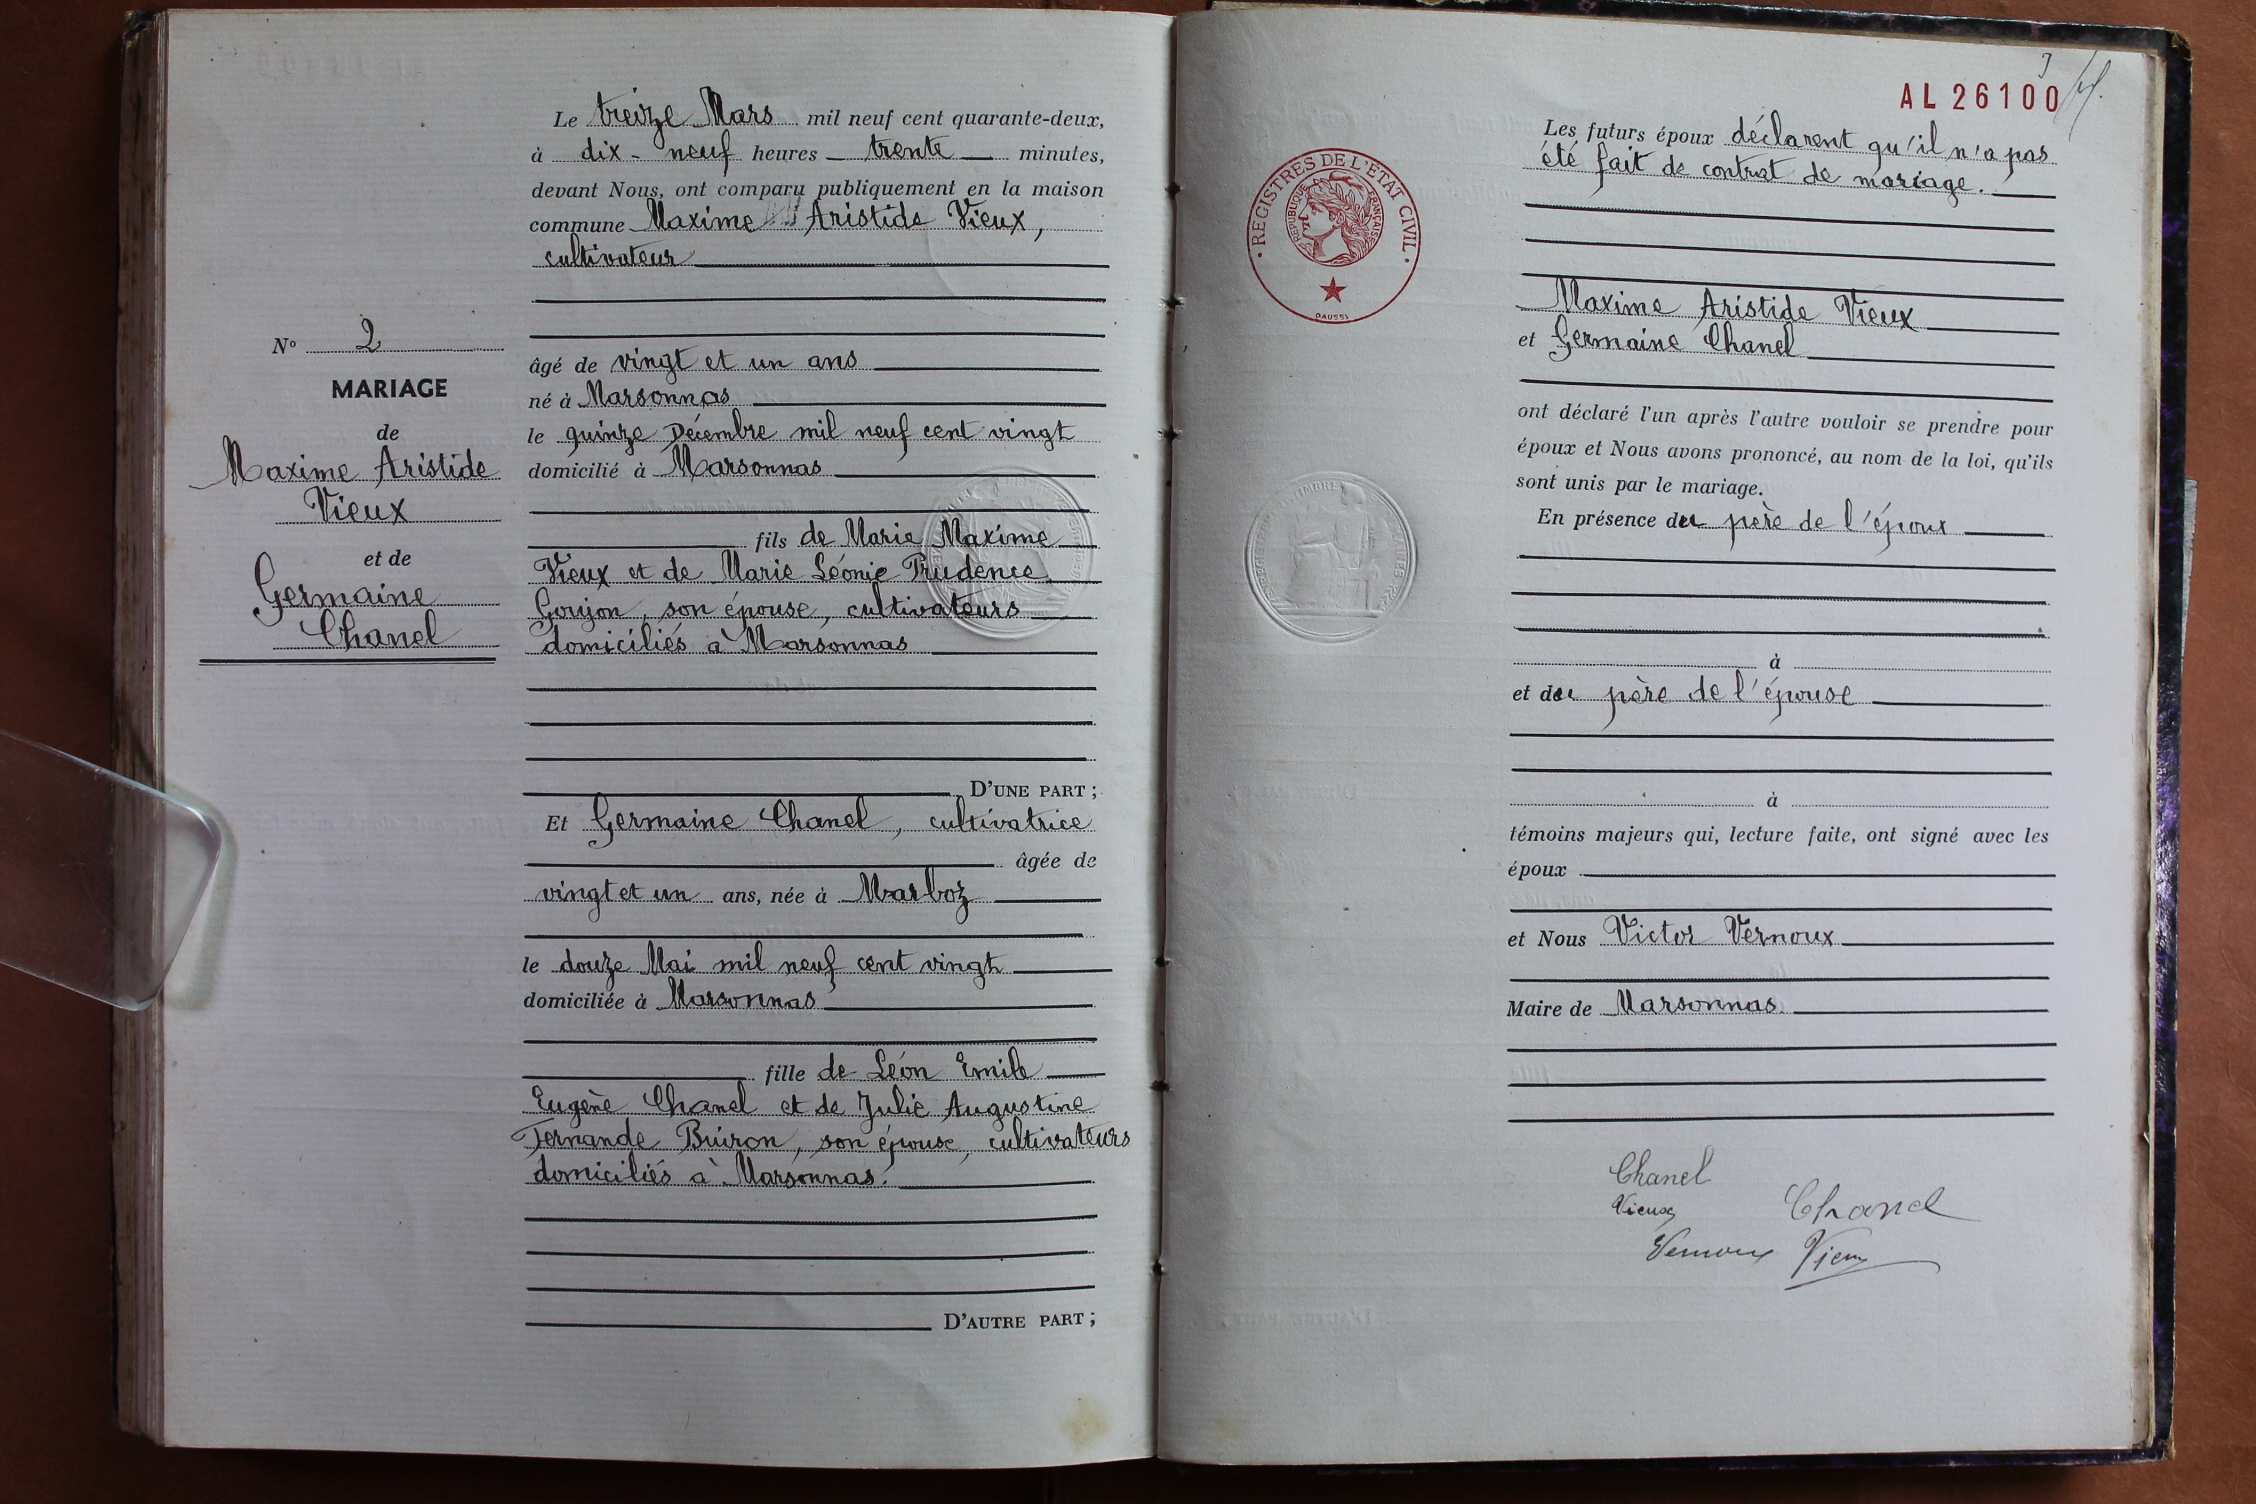 Le treize Mars mil neuf cent quarante-deux,
à dix-neuf heures trente minutes,
devant Nous, ont comparu publiquement en la maison
commune Maxime Aristide Vieux,
cultivateur
N° 2
MARIAGE
de
Maxime Aristide
Vieux
et de
Germaine
Chanel
âgé de vingt et un ans
né à Marsonnas
le quinze Décembre mil neuf cent vingt
domicilié à Marsonnas
fils de Marie Maxime
Vieux et de Marie Léonie Prudence
Goujon, son épouse, cultivateurs
domiciliés à Marsonnas
D'UNE PART ;
Et Germaine Chanel, cultivatrice
âgée de
vingt et un ans, née à Marboz
le douze Mai mil neuf cent vingt
domiciliée à Marsonnas
fille de Léon Emile
Eugène Chanel et de Julie Augustine
Fernande Buiron, son épouse, cultivateurs
domiciliés à Marsonnas.
D'AUTRE PART ;
AL 26100
REGISTRES DE L'ETAT CIVIL
REPUBLIQUE FRANÇAISE
DAUSSI
Les futurs époux déclarent qu'il n'a pas
été fait de contrat de mariage.
Maxime Aristide Vieux
et Germaine Chanel
ont déclaré l'un après l'autre vouloir se prendre pour
époux et Nous avons prononcé, au nom de la loi, qu'ils
sont unis par le mariage.
En présence du père de l'époux
à
et du père de l'épouse
à
témoins majeurs qui, lecture faite, ont signé avec les
époux
et Nous Victor Vernoux
Maire de Marsonnas.
Chanel
Vieux
Chanel
Vernoux Vieux